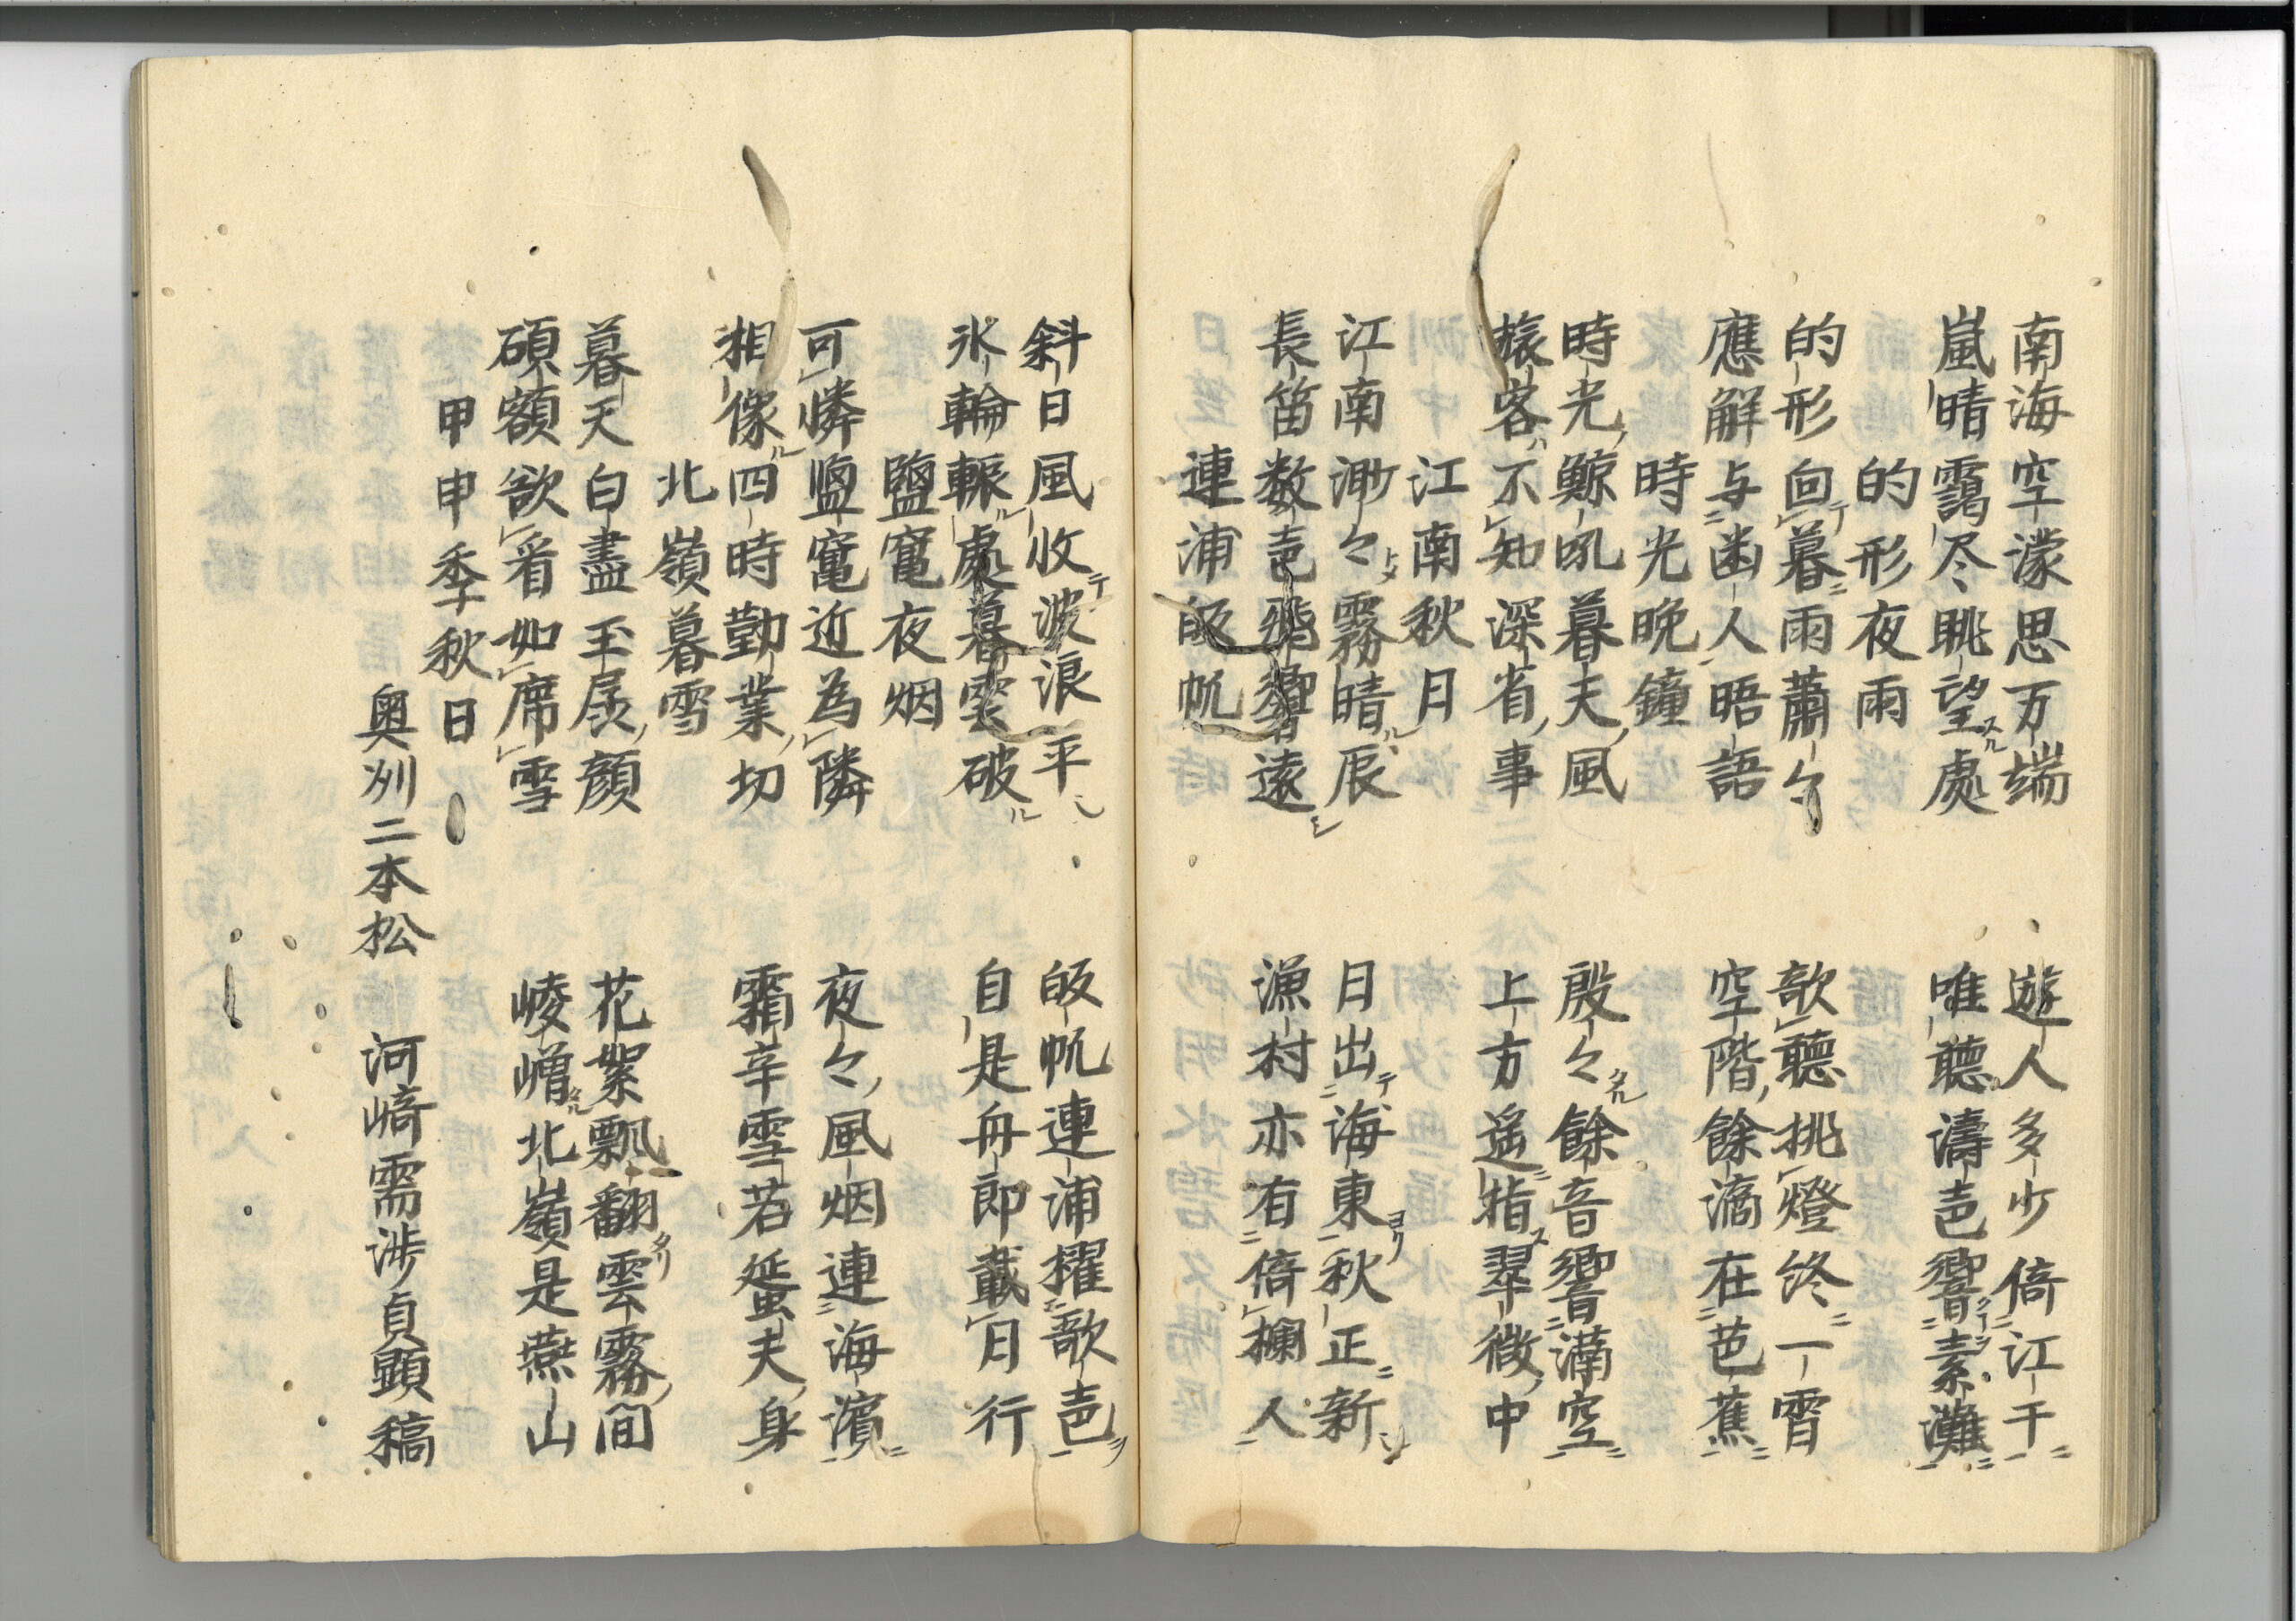 南海空濛思万端　遊人多少倚江干
嵐晴靄尽眺望處　唯聽濤声響素灘
的形夜雨
的形回暮雨蕭々　欹聽挑燈終一霄
應解与幽人晤語　空階餘滴在芭蕉
時光晩鐘
時光鯨吼暮天風　殷々餘音響満空
旅客不知深省事　上方遥指翠微中
江南秋月
江南渺々霧晴辰　日出海東秋正新
長笛数声飛響遠　漁村亦有倚欄人
連浦皈帆
斜日風收波浪平　皈帆連浦櫂歌声
氷輪輾處暮雲破　自是舟郎載月行
鹽竃夜烟
可憐鹽竃近為隣　夜々風烟連海濱
想像四時勤業切　霜辛雪若蜑夫身
北嶺暮雪
暮天白盡玉屐顔　花絮飄翻雲霧間
碩額欲看如席雪　崚嶒北嶺是燕山
甲申季秋日
奥州二本松　河﨑需渉貞顕稿